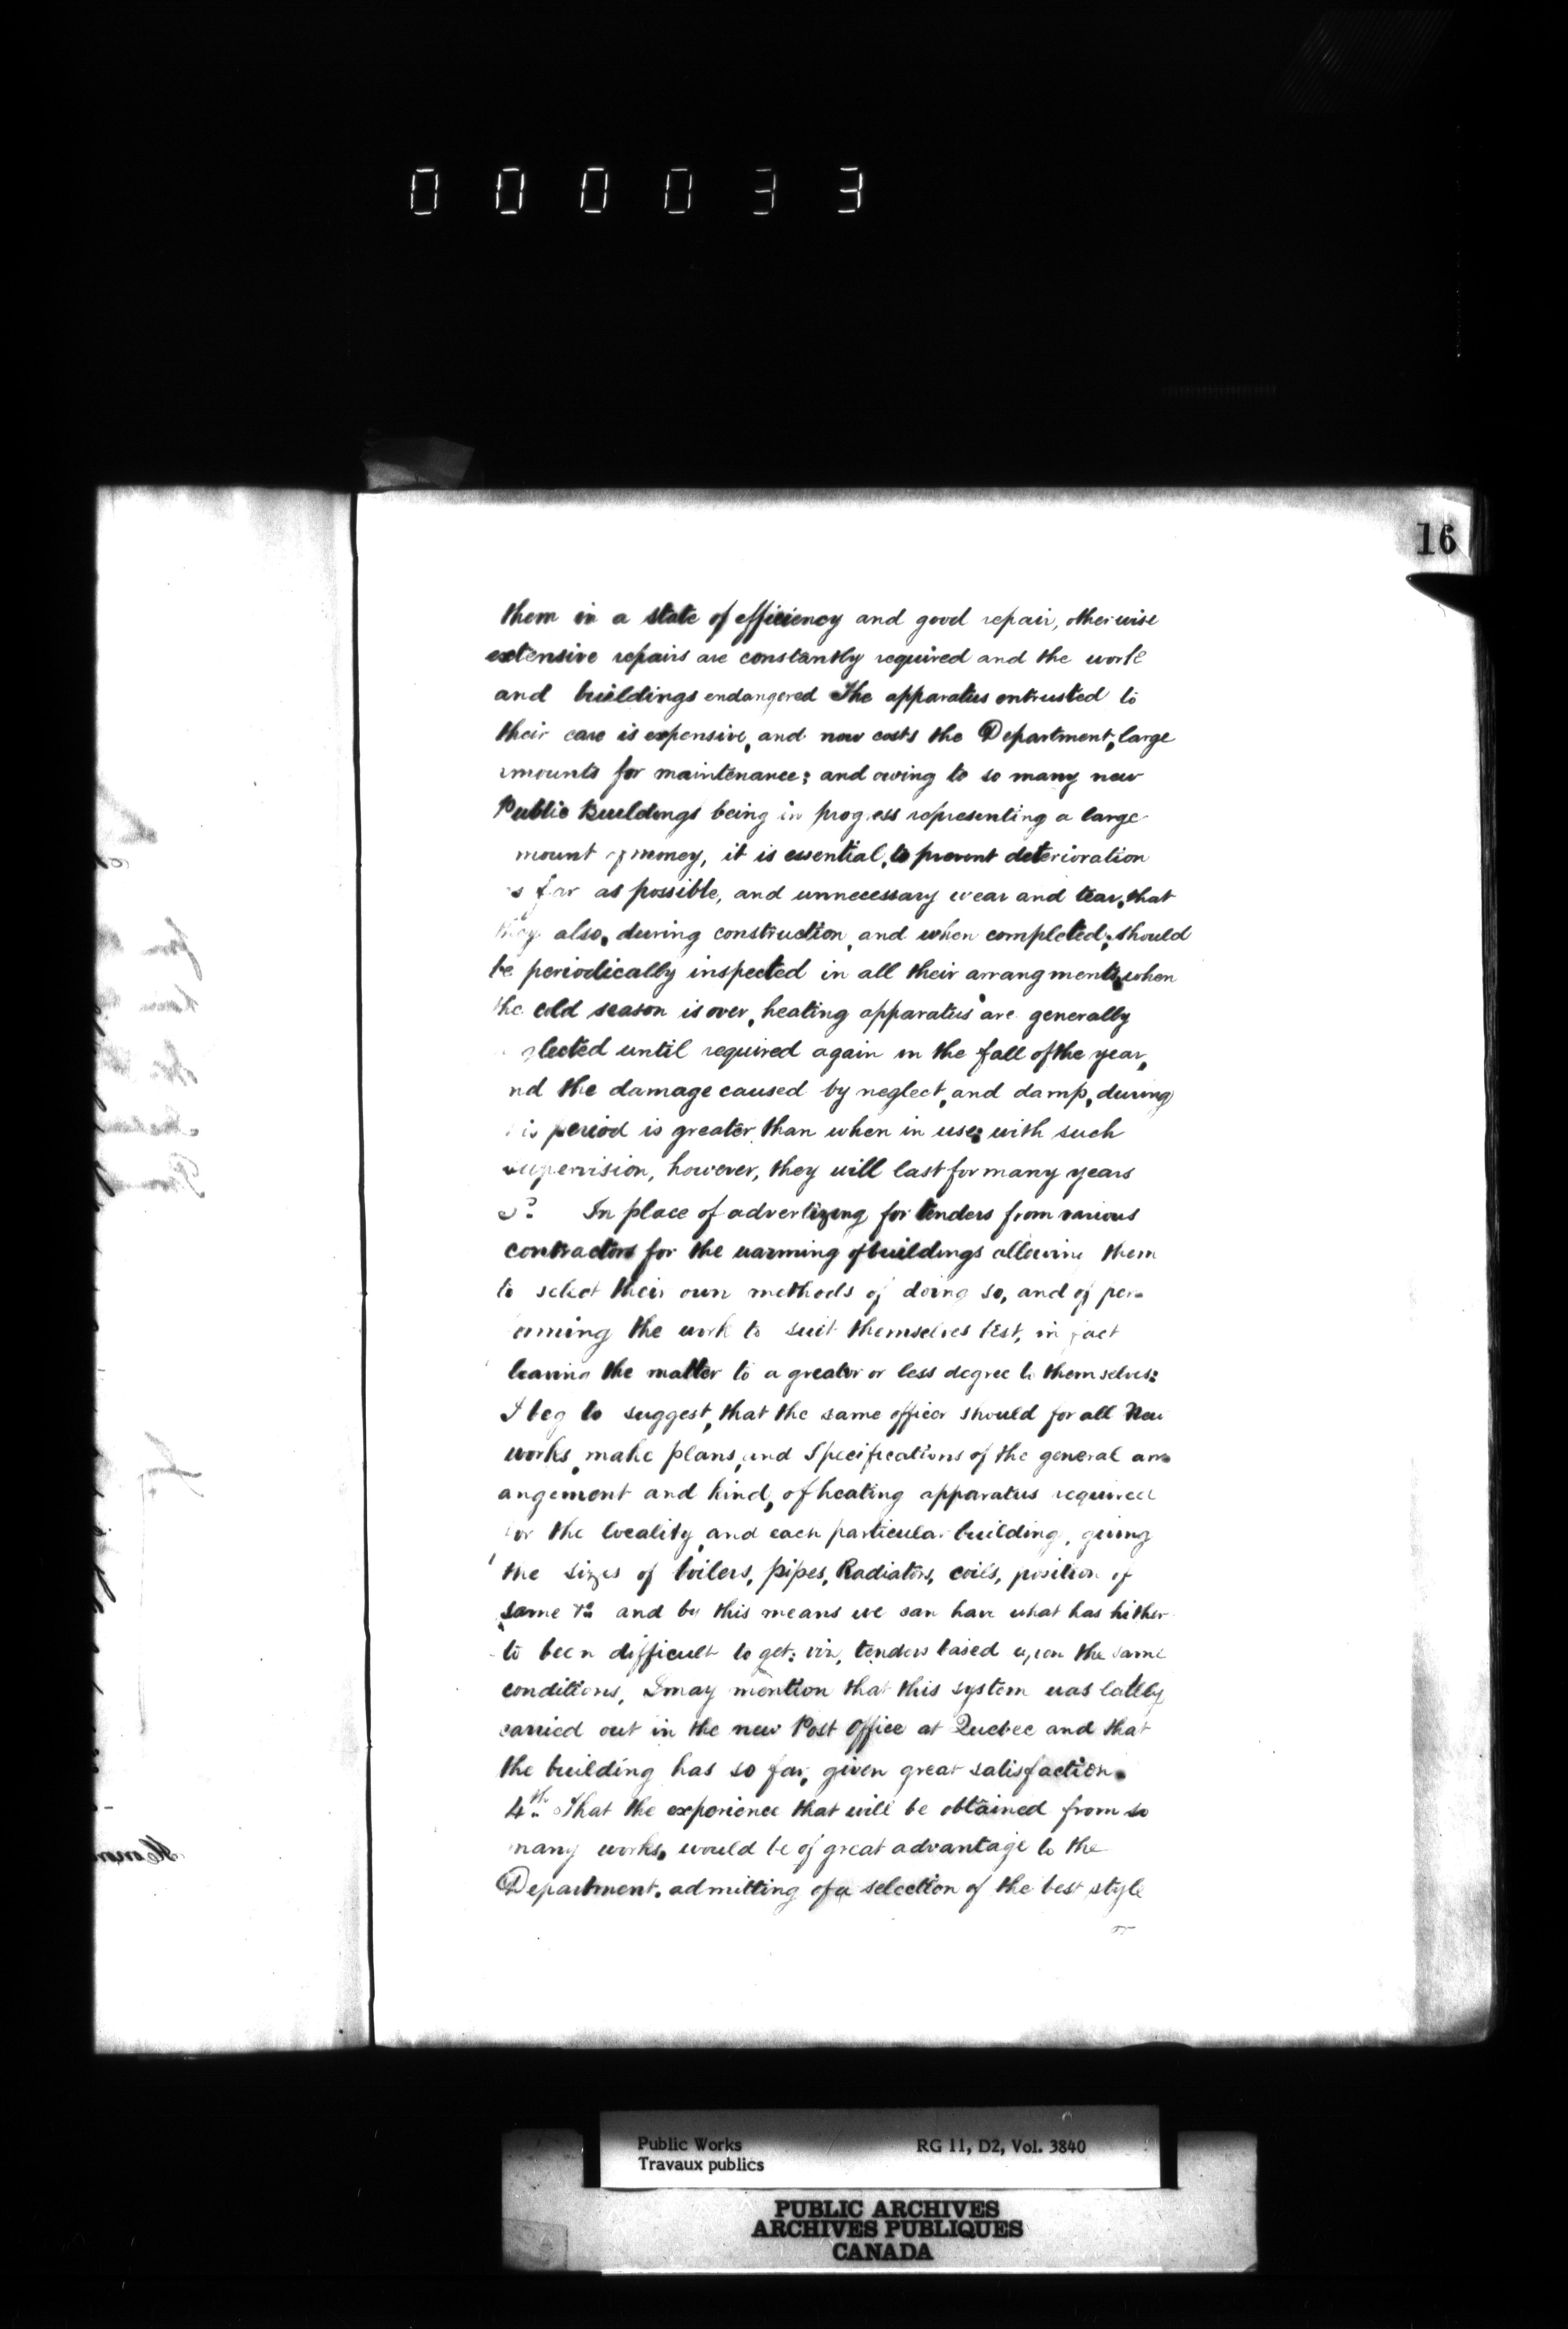 000033
16
them in a state of efficiency and good repair, otherwise
extensive repairs are constantly required and the work
and buildings endangered The apparatus entrusted to
their care is expensive, and now costs the Department, large
amounts for maintenance; and owing to so many new
Public Buildings being in progress representing a large
mount of money, it is essential, to prevent deterioration
as far as possible, and unnecessary wear and tear, that
they also, during construction, and when completed; should
be periodically inspected in all their arrangments, when
the cold season is over, heating apparatus are generally
glected until required again in the fall of the year,
nd the damage caused by neglect, and damp, during
is period is greater than when in use; with such
supervision, however, they will last for many years
In place of advertizing for tenders from various
contractors for the warming of buildings allowing them
to select their own methods of doing so, and of per=
orming the work to suit themselves best, in fact
leaving the matter to a greater or less degree to themselves:
I beg to suggest, that the same officer should for all New
works, make plans, and Specifications of the general arr=
angement and kind, of heating apparatus required
for the locality, and each particular building, giving
the sizes of boilers, pipes, Radiators, coils, position of
same &c and by this means we can have what has hither
to been difficult to get: viz, tenders based upon the same
conditions, I may mention that this system was lately
carried out in the new Post Office at Quebec and that
the building has so far, given great satisfaction.
4th That the experience that will be obtained from so
many works, would be of great advantage to the
Department, admitting of a selection of the best style
Public Works
Travaux publics
RG 11, D2, Vol. 3840
PUBLIC ARCHIVES
ARCHIVES PUBLIQUES
CANADA